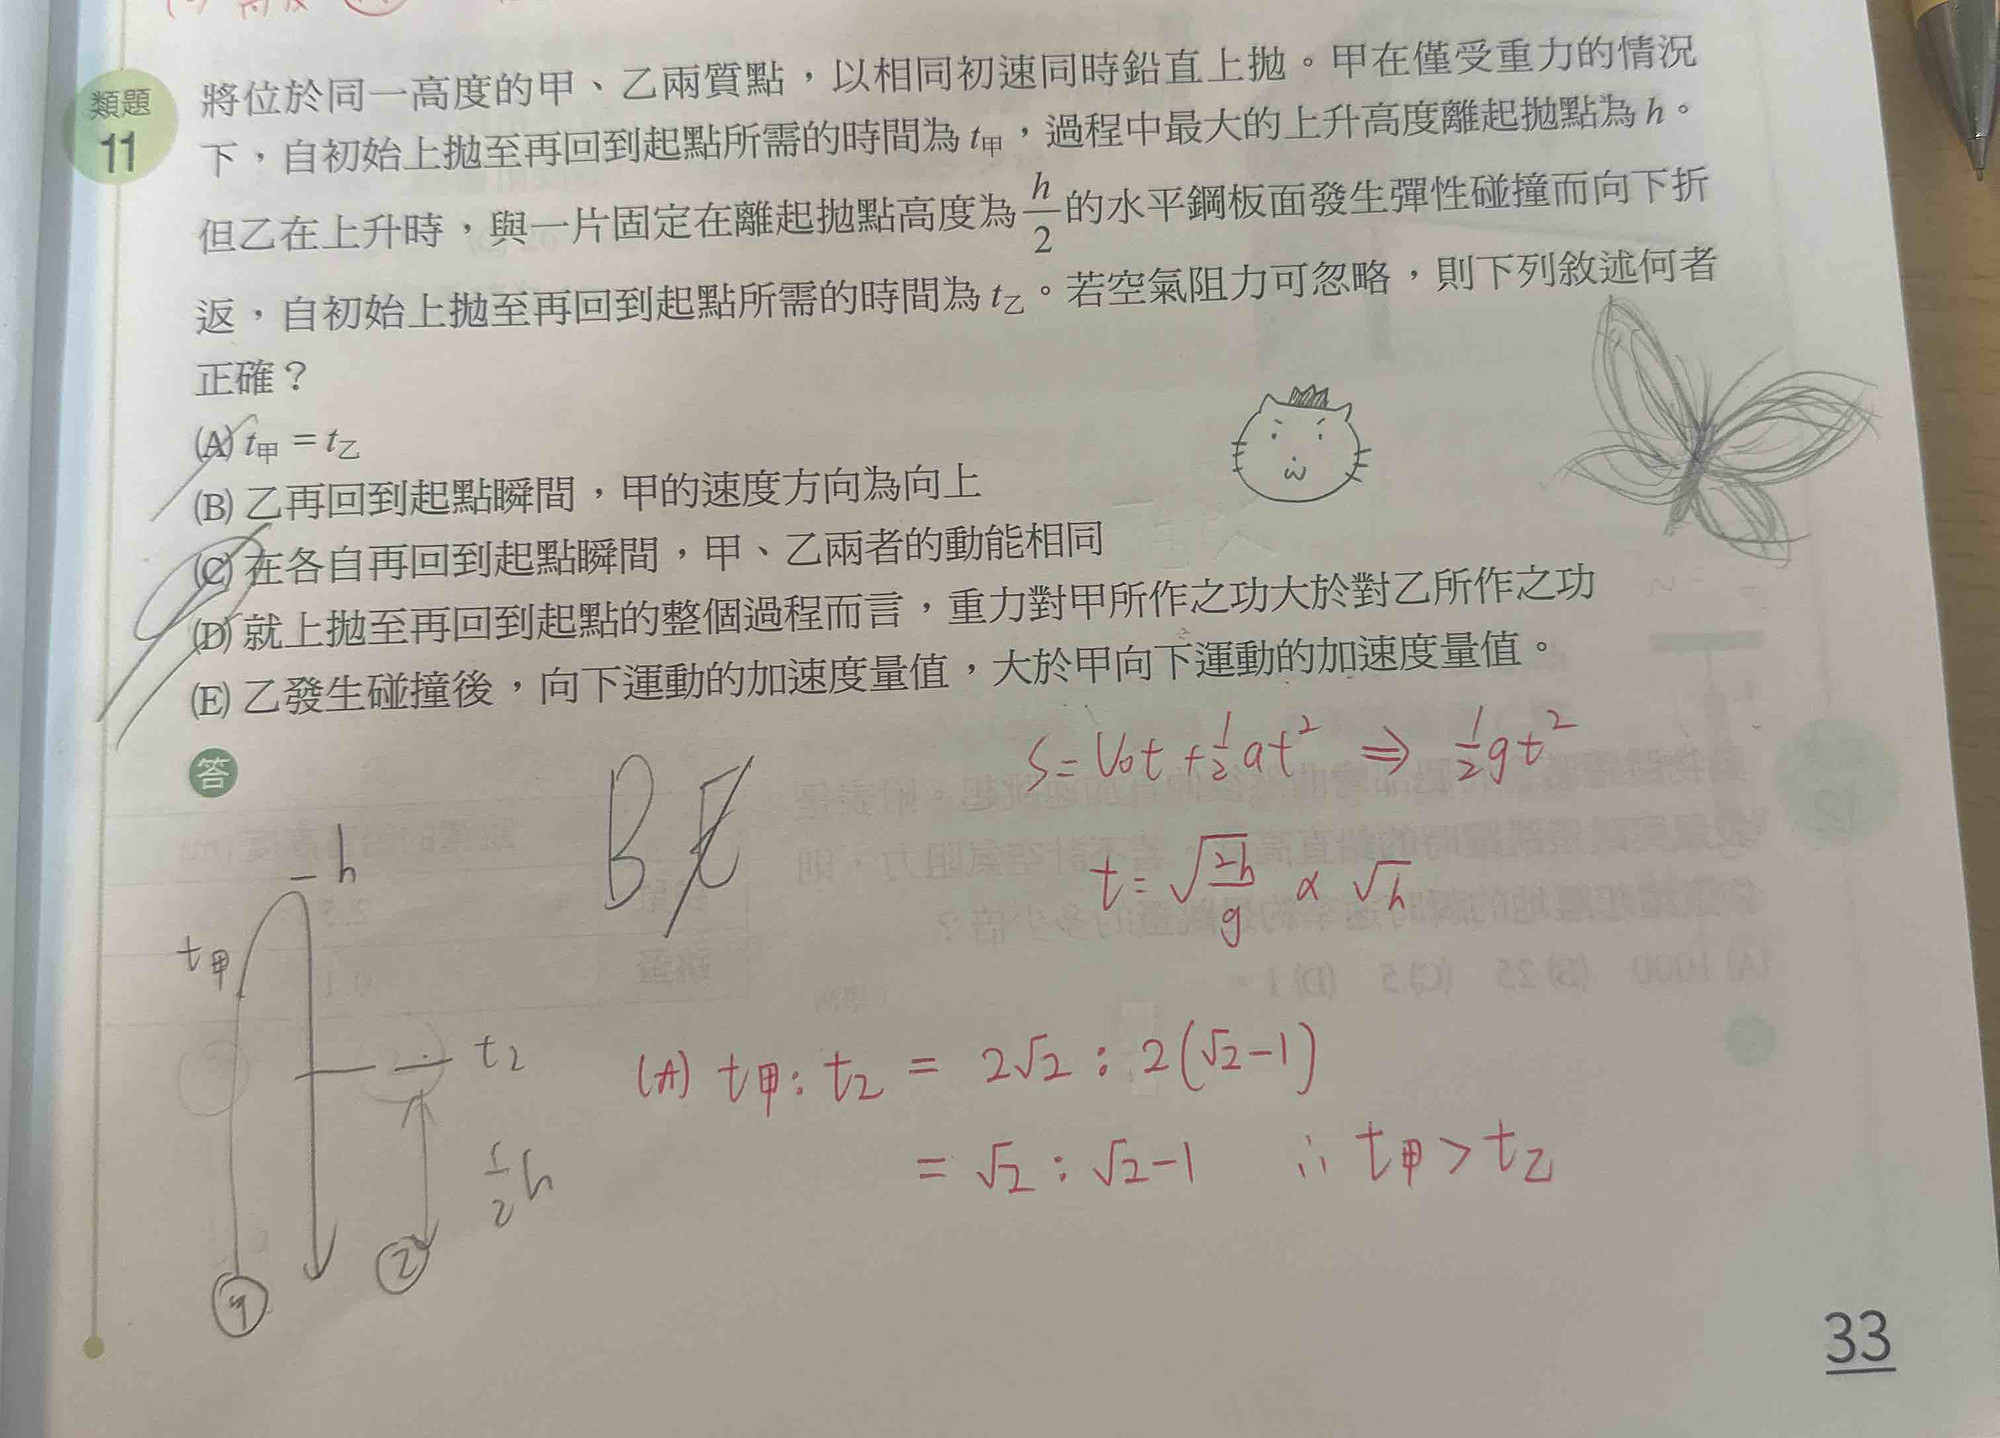 類題
11
將位於同一高度的甲、乙兩質點，以相同初速同時鉛直上拋。甲在僅受重力的情況
下，自初始上拋至再回到起點所需的時間為 t甲，過程中最大的上升高度離起拋點為 h。
但乙在上升時，與一片固定在離起拋點高度為 h/2 的水平鋼板面發生彈性碰撞而向下折
返，自初始上拋至再回到起點所需的時間為 t乙。若空氣阻力可忽略，則下列敘述何者
正確？
(A) t甲 = t乙
(B) 乙再回到起點瞬間，甲的速度方向為向上
(C) 在各自再回到起點瞬間，甲、乙兩者的動能相同
(D) 就上拋至再回到起點的整個過程而言，重力對甲所作之功大於對乙所作之功
(E) 乙發生碰撞後，向下運動的加速度量值，大於甲向下運動的加速度量值。
答
BE
S = V₀t + 1/2 at² ⇒ 1/2 gt²
t = √(2h/g) ∝ √h
h
t甲
t乙
1/2 h
甲
乙
(A) t甲 : t乙 = 2√2 : 2(√2-1)
= √2 : √2-1 ∴ t甲 > t乙
33